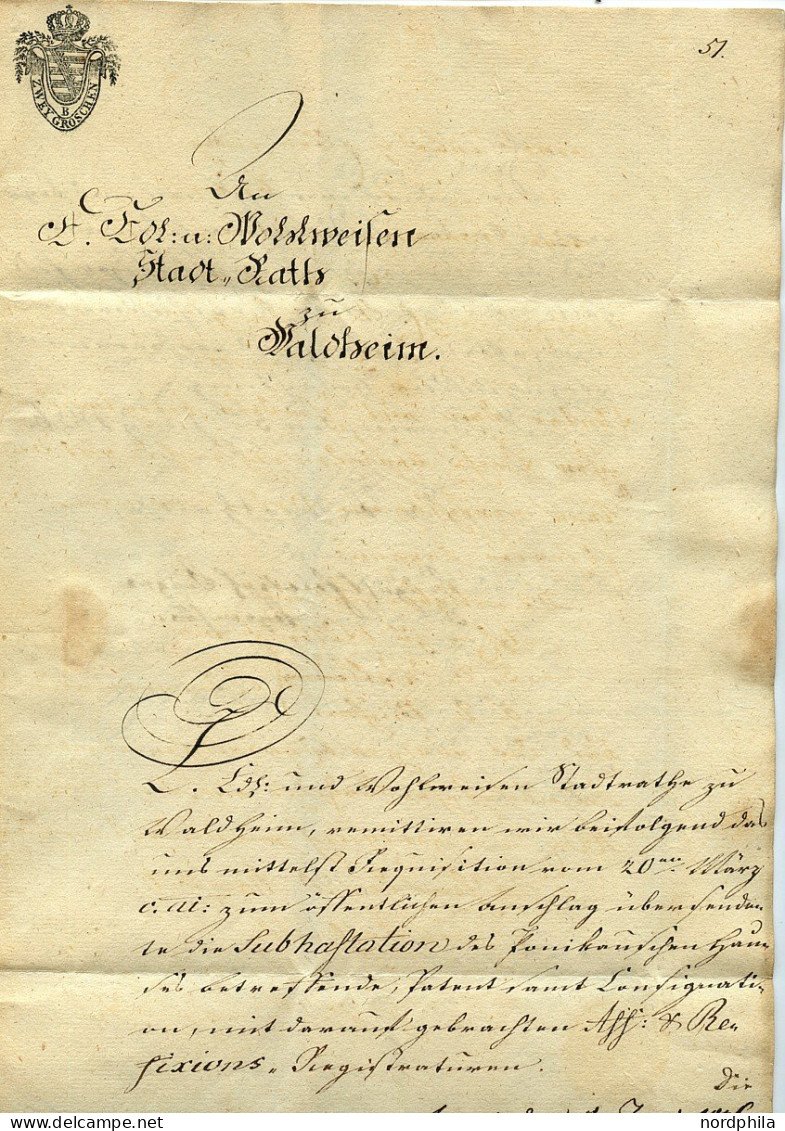 51.
ZWEY GROSCHEN
B
An
E. Edl: u: Wohlweisen
Stadt-Raths
zu
Waldheim.
E. Edl: und Wohlweisen Stadtrathe zu
Waldheim, remittiren wir beifolgend das
uns mittelst Requisition vom 20ten März
c. ai: zum öffentlichen Anschlag übersende-
te die Subhastation des Ponikauschen Hau-
ses betreffende, Patent samt Consignati-
on, mit darauf gebrachten Aff: & Re-
fixions-Registraturen.
Die
nordphila